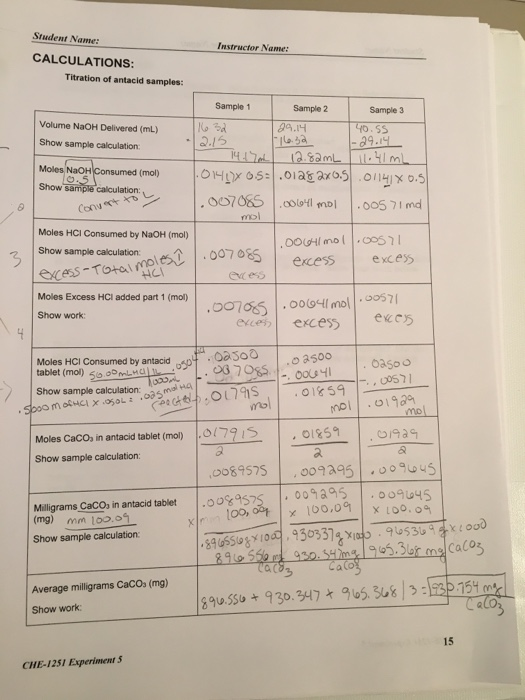 Student Name:
Instructor Name:
CALCULATIONS:
Titration of antacid samples:
Sample 1 Sample 2 Sample 3
Volume NaOH Delivered (mL)
Show sample calculation:
16.32 29.14 40.55
- 2.15 -16.32 -29.14
14.17mL 12.82mL 11.41 mL
Moles NaOH Consumed (mol)
0.5
Show sample calculation:
convert to L
.01417x 0.5= .01282x0.5 .01141 x 0.5
.007085 mol .00641 mol .00571 mol
2
Moles HCl Consumed by NaOH (mol)
Show sample calculation:
excess-Total moles HCl
.007085 excess
.00641 mol excess
.00571 excess
3
Moles Excess HCl added part 1 (mol)
Show work:
.007085 excess
.00641 mol excess
.00571 excess
4
Moles HCl Consumed by antacid
tablet (mol) 50.00mL HCl 1L .050L
1000mL
Show sample calculation:
.5000 mol HCl x .050L = .025 mol HCl
.02500 .02500 .02500
- .007085 - .00641 - .00571
.017915 mol .01859 mol .01929 mol
Moles CaCO₃ in antacid tablet (mol)
Show sample calculation:
.017915 .01859 .01929
2 2 2
.0089575 .009295 .009645
Milligrams CaCO₃ in antacid tablet
(mg) mm 100.09
Show sample calculation:
.0089575 .009295 .009645
x 100.09 x 100.09 x 100.09
.896556g x 1000 .930337g x 1000 .965369g x 1000
896.556 mg CaCO3 930.347mg CaCO3 965.368 mg CaCO3
Average milligrams CaCO₃ (mg)
Show work:
896.556 + 930.347 + 965.368 / 3 = 930.754 mg CaCO3
15
CHE-1251 Experiment 5